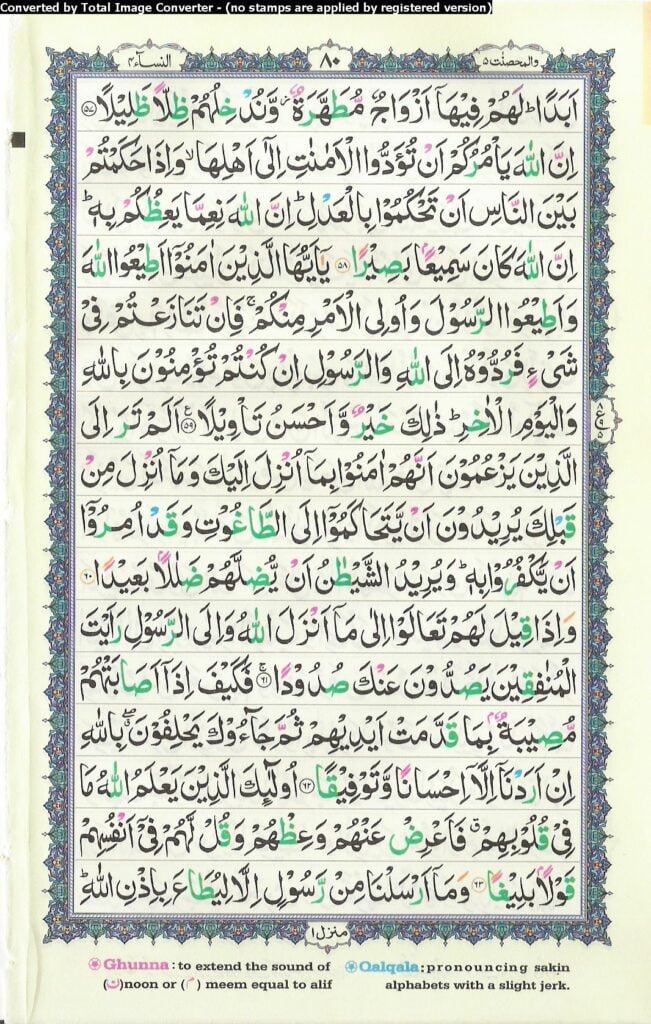 Converted by Total Image Converter - (no stamps are applied by registered version)
والمحصنت ٥ ٨٠ النسآء ٤
اَبَدًا ؕ لَهُمْ فِیْهَاۤ اَزْوَاجٌ مُّطَهَّرَةٌ ؗ وَّنُدْخِلُهُمْ ظِلًّا ظَلِیْلًا ﴿۵۷﴾
اِنَّ اللّٰهَ یَاْمُرُكُمْ اَنْ تُؤَدُّوا الْاَمٰنٰتِ اِلٰۤی اَهْلِهَا ۙ وَاِذَا حَكَمْتُمْ
بَیْنَ النَّاسِ اَنْ تَحْكُمُوْا بِالْعَدْلِ ؕ اِنَّ اللّٰهَ نِعِمَّا یَعِظُكُمْ بِهٖ ؕ
اِنَّ اللّٰهَ كَانَ سَمِیْعًۢا بَصِیْرًا ﴿۵۸﴾ یٰۤاَیُّهَا الَّذِیْنَ اٰمَنُوْۤا اَطِیْعُوا اللّٰهَ
وَاَطِیْعُوا الرَّسُوْلَ وَاُولِی الْاَمْرِ مِنْكُمْ ۚ فَاِنْ تَنَازَعْتُمْ فِیْ
شَیْءٍ فَرُدُّوْهُ اِلَی اللّٰهِ وَالرَّسُوْلِ اِنْ كُنْتُمْ تُؤْمِنُوْنَ بِاللّٰهِ
وَالْیَوْمِ الْاٰخِرِ ؕ ذٰلِكَ خَیْرٌ وَّاَحْسَنُ تَاْوِیْلًا ﴿۵۹﴾ اَلَمْ تَرَ اِلَی
الَّذِیْنَ یَزْعُمُوْنَ اَنَّهُمْ اٰمَنُوْا بِمَاۤ اُنْزِلَ اِلَیْكَ وَمَاۤ اُنْزِلَ مِنْ
قَبْلِكَ یُرِیْدُوْنَ اَنْ یَّتَحَاكَمُوْۤا اِلَی الطَّاغُوْتِ وَقَدْ اُمِرُوْۤا
اَنْ یَّكْفُرُوْا بِهٖ ؕ وَیُرِیْدُ الشَّیْطٰنُ اَنْ یُّضِلَّهُمْ ضَلٰلًۢا بَعِیْدًا ﴿۶۰﴾
وَاِذَا قِیْلَ لَهُمْ تَعَالَوْا اِلٰی مَاۤ اَنْزَلَ اللّٰهُ وَاِلَی الرَّسُوْلِ رَاَیْتَ
الْمُنٰفِقِیْنَ یَصُدُّوْنَ عَنْكَ صُدُوْدًا ﴿۶۱﴾ فَكَیْفَ اِذَاۤ اَصَابَتْهُمْ
مُّصِیْبَةٌۢ بِمَا قَدَّمَتْ اَیْدِیْهِمْ ثُمَّ جَآءُوْكَ یَحْلِفُوْنَ ۖ بِاللّٰهِ
اِنْ اَرَدْنَاۤ اِلَّاۤ اِحْسَانًا وَّتَوْفِیْقًا ﴿۶۲﴾ اُولٰٓئِكَ الَّذِیْنَ یَعْلَمُ اللّٰهُ مَا
فِیْ قُلُوْبِهِمْ ۗ فَاَعْرِضْ عَنْهُمْ وَعِظْهُمْ وَقُلْ لَّهُمْ فِیْۤ اَنْفُسِهِمْ
قَوْلًۢا بَلِیْغًا ﴿۶۳﴾ وَمَاۤ اَرْسَلْنَا مِنْ رَّسُوْلٍ اِلَّا لِیُطَاعَ بِاِذْنِ اللّٰهِ ؕ
منزل ١
Ghunna: to extend the sound of
(ن)noon or (م) meem equal to alif
Qalqala: pronouncing sakin
alphabets with a slight jerk.